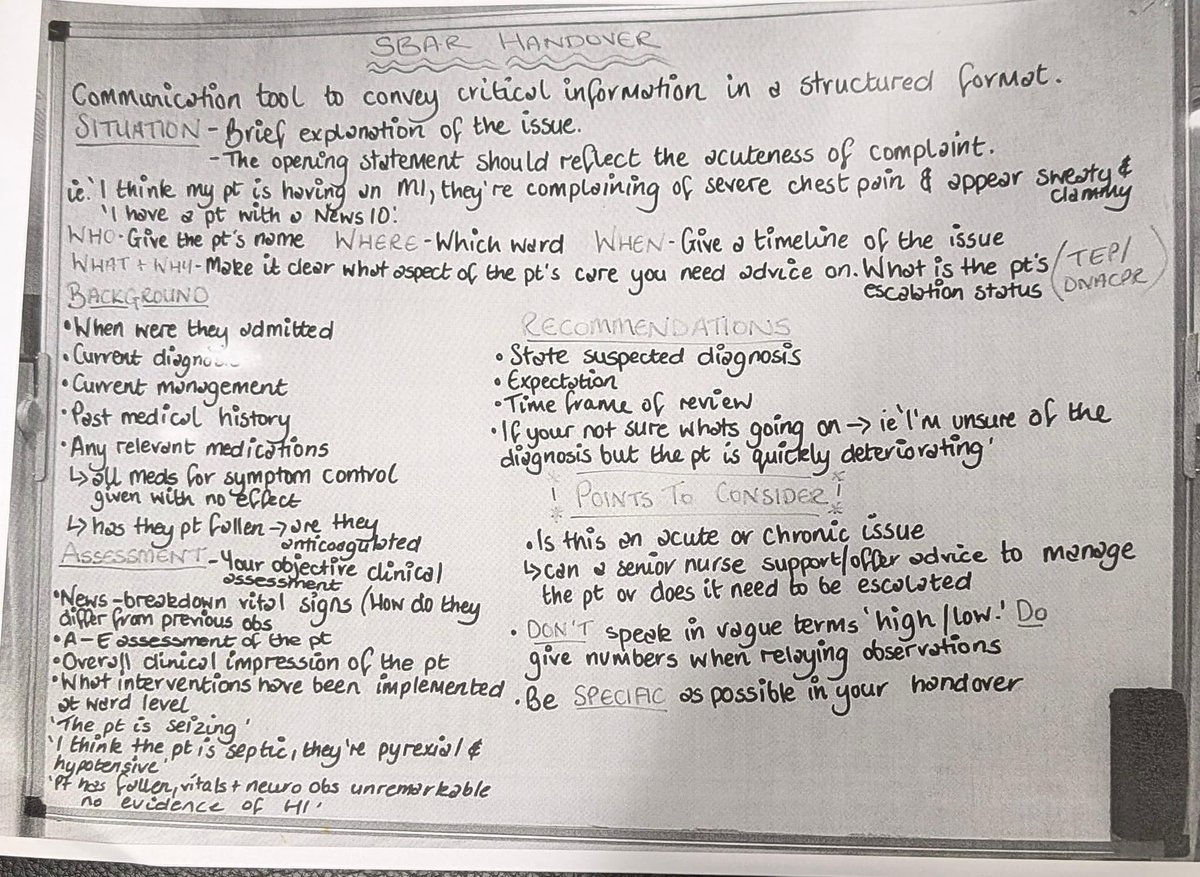 SBAR HANDOVER
Communication tool to convey critical information in a structured format.
SITUATION - Brief explanation of the issue.
- The opening statement should reflect the acuteness of complaint.
ie. 'I think my pt is having an MI, they're complaining of severe chest pain & appear sweaty &
clammy
'I have a pt with a News 10.'
WHO - Give the pt's name WHERE - Which ward WHEN - Give a timeline of the issue
WHAT + WHY - Make it clear what aspect of the pt's care you need advice on. What is the pt's
escalation status
(TEP/
DNACPR)
BACKGROUND
• When were they admitted
• Current
• Current management
• Past medical history
• Any relevant medications
↳ all meds for symptom control
given with no effect
↳ has they pt fallen → are they
anticoagulated
ASSESSMENT - Your objective clinical
assessment
• News - breakdown vital signs (How do they
differ from previous obs
• A - E assessment of the pt
• Overall clinical impression of the pt
• What interventions have been implemented
at ward level
'The pt is seizing'
'I think the pt is septic, they're pyrexial &
hypotensive'
'Pt has fallen, vitals + neuro obs unremarkable
no evidence of HI'
RECOMMENDATIONS
• State suspected diagnosis
• Expectation
• Time frame of review
• If your not sure whats going on → ie 'I'm unsure of the
diagnosis but the pt is quickly deteriorating'
! POINTS TO CONSIDER !
• Is this an acute or chronic issue
↳ can a senior nurse support/offer advice to manage
the pt or does it need to be escalated
• DON'T speak in vague terms 'high/low.' Do
give numbers when relaying observations
• Be SPECIFIC as possible in your handover